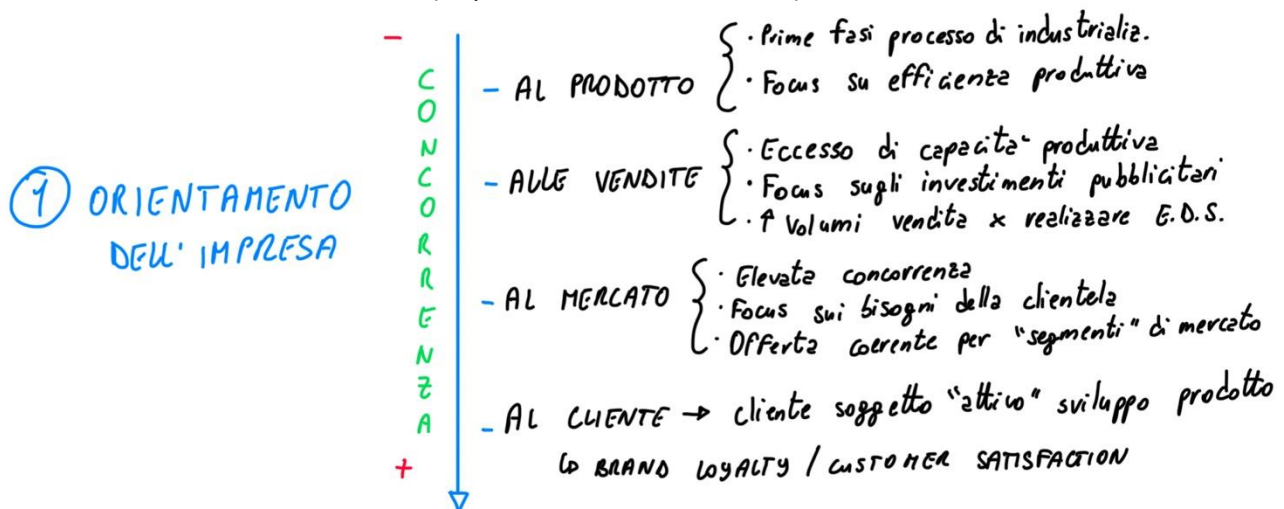 -
CONCORRENZA
+
1 ORIENTAMENTO
DELL' IMPRESA
- AL PRODOTTO
· Prime fasi processo di industrializ.
· Focus su efficienza produttiva
- ALLE VENDITE
· Eccesso di capacita' produttiva
· Focus sugli investimenti pubblicitari
· ↑ Volumi vendita x realizzare E.D.S.
- AL MERCATO
· Elevata concorrenza
· Focus sui bisogni della clientela
· Offerta coerente per "segmenti" di mercato
- AL CLIENTE → cliente soggetto "attivo" sviluppo prodotto
↳ BRAND LOYALTY / CUSTOMER SATISFACTION